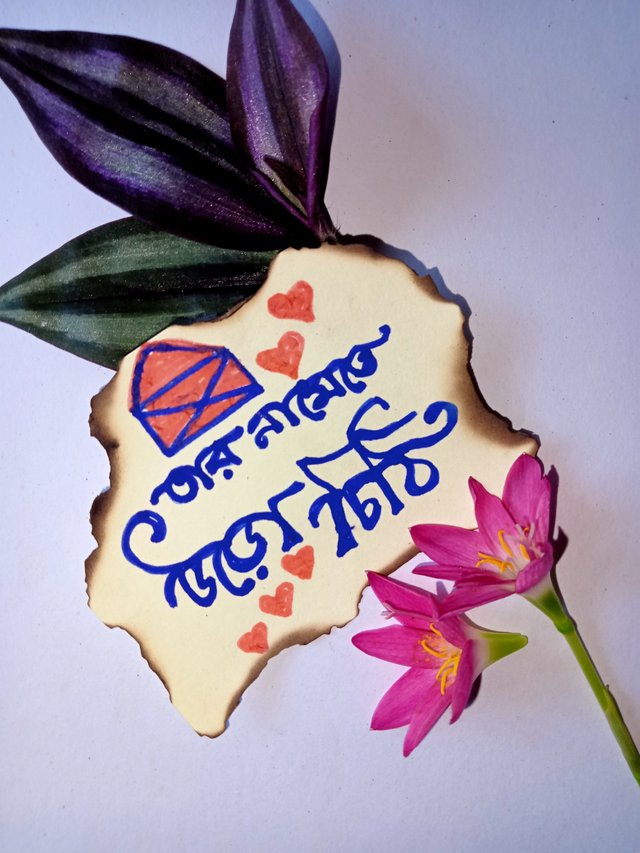 তার নামেতে
উড়ো চিঠি